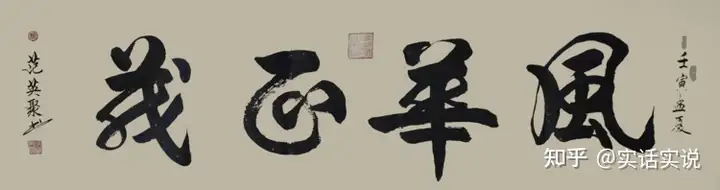 壬寅夏
風華正茂
范英聚
知乎 @实话实说